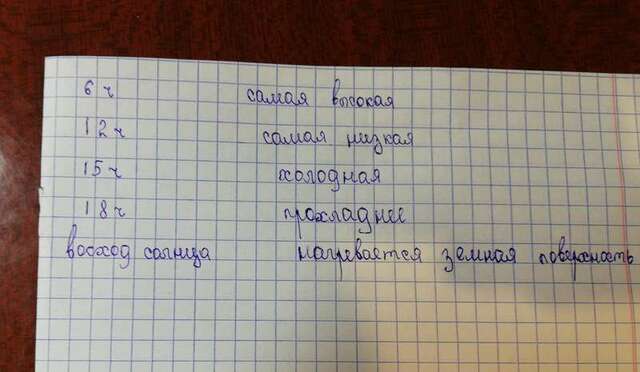 6 ч самая высокая
12 ч самая низкая
15 ч холодная
18 ч прохладнее
восход солнца нагревается земная поверхность